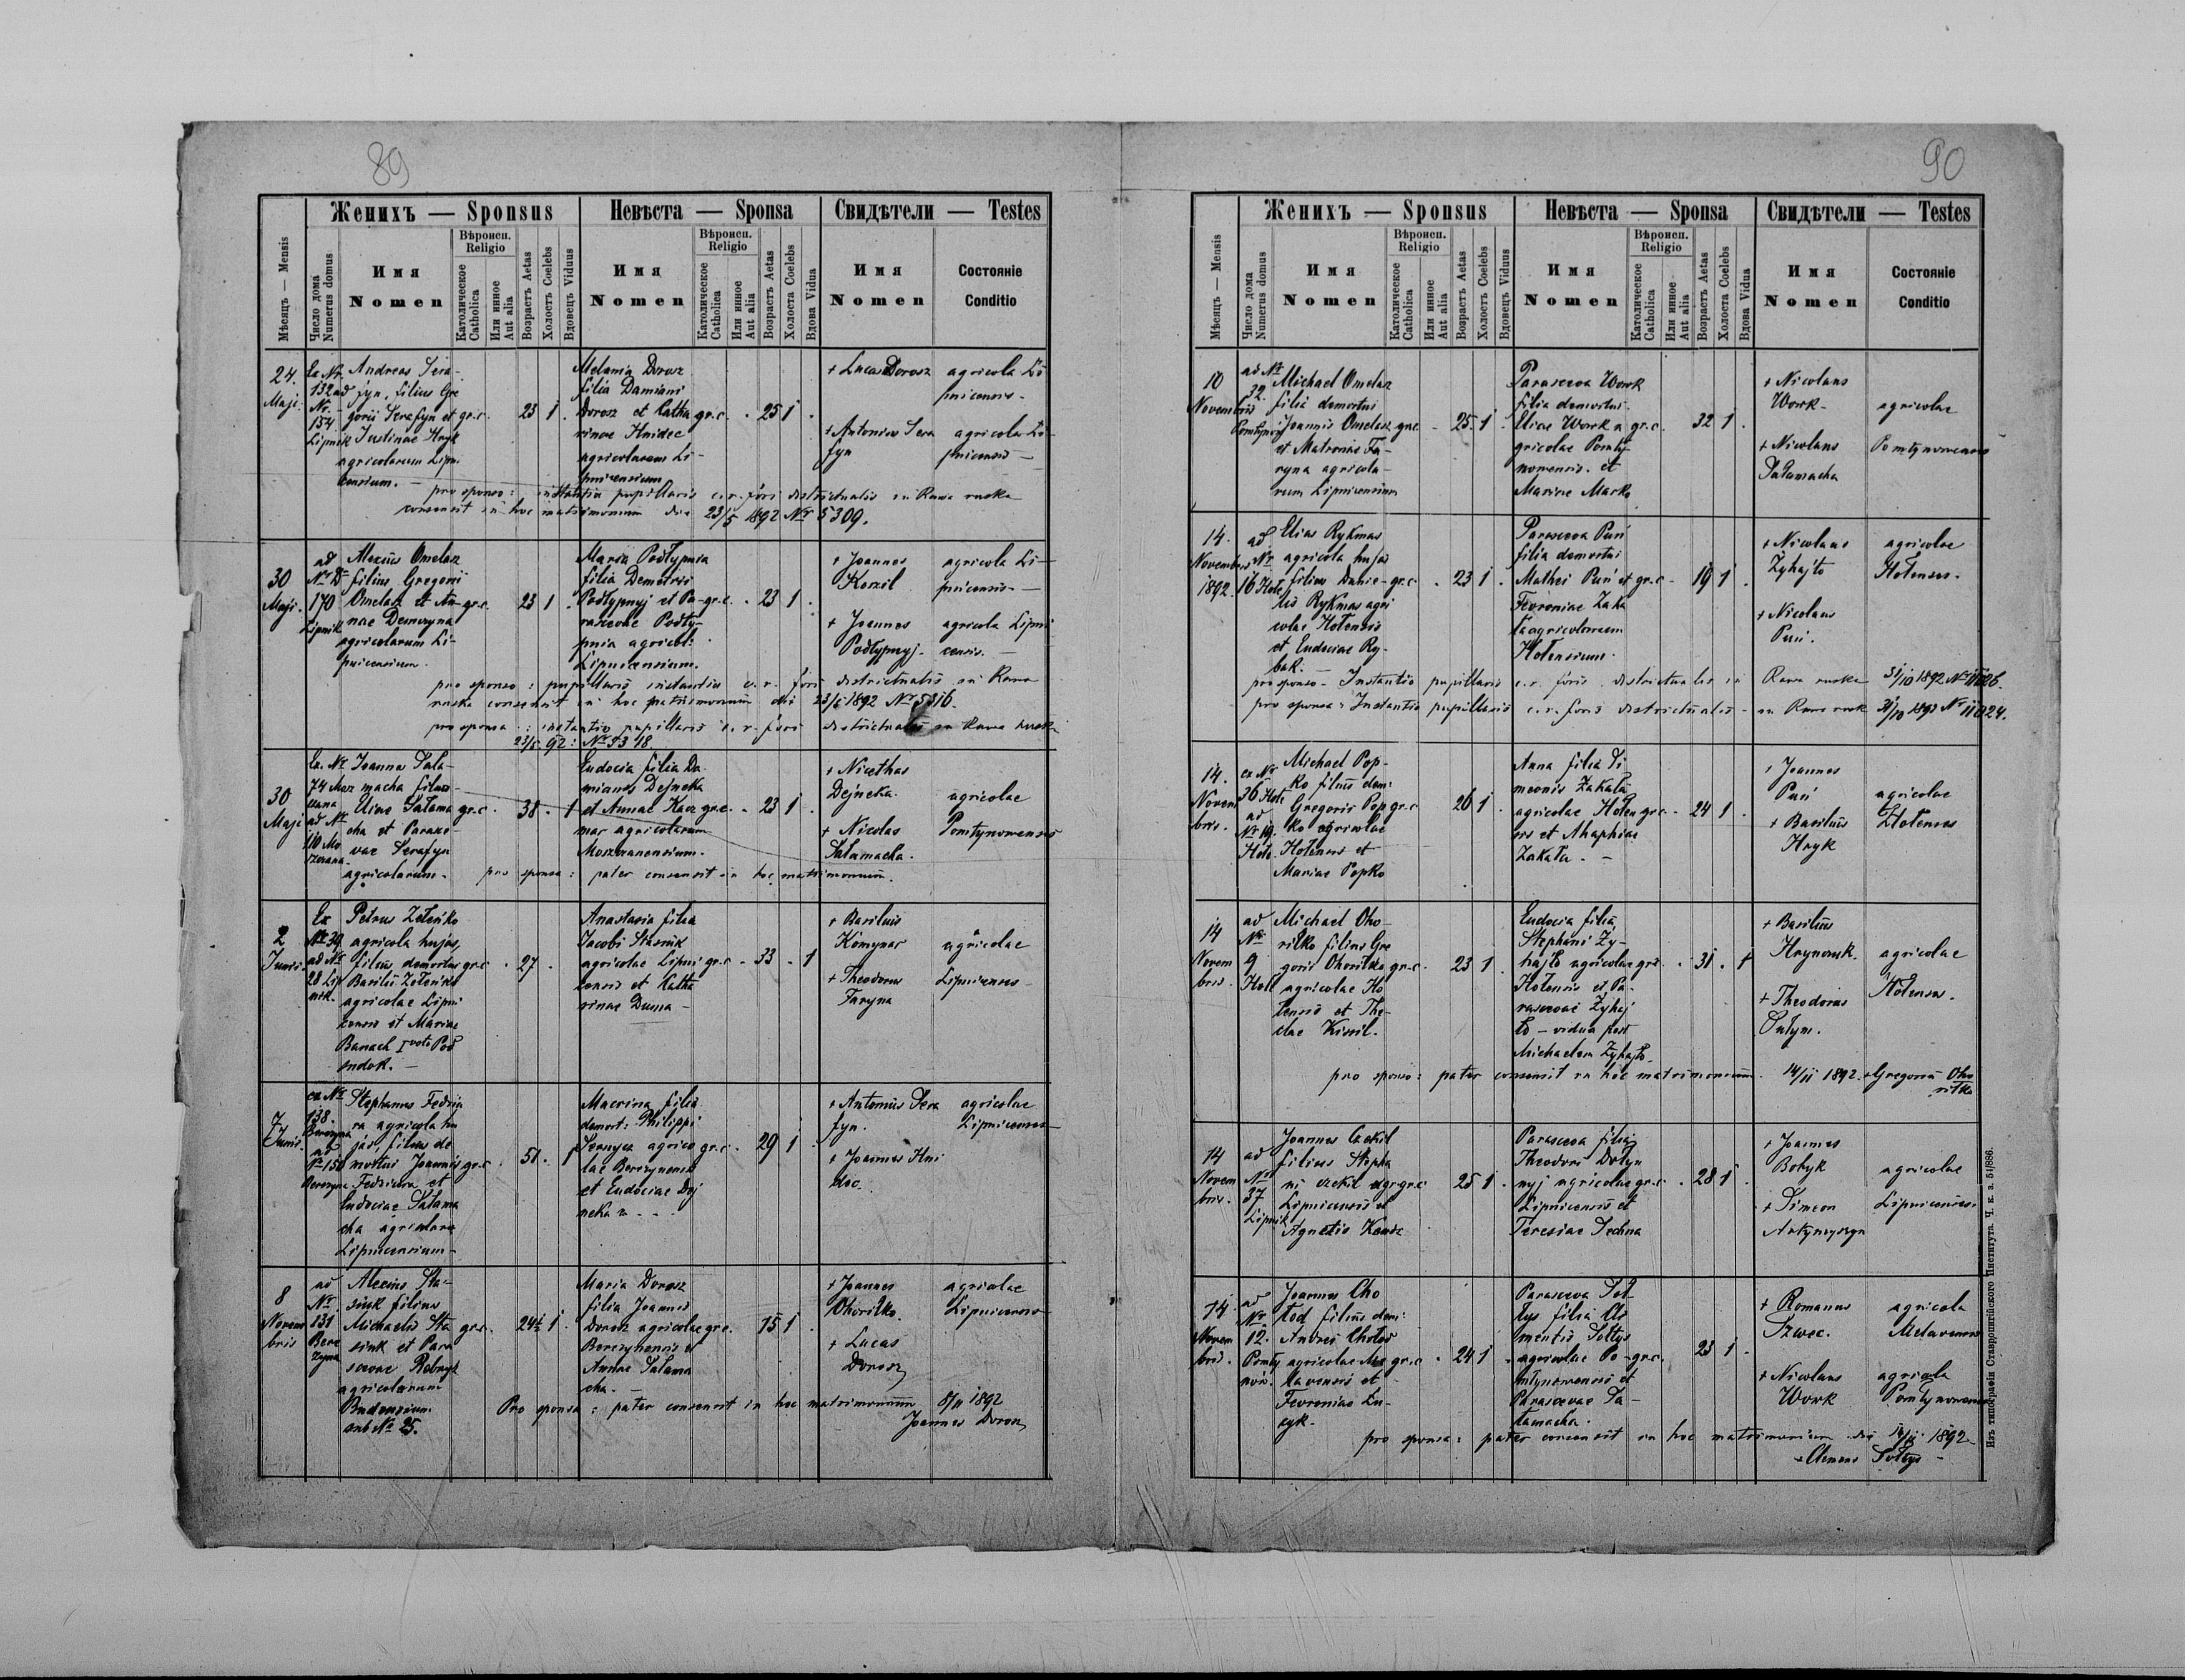 89
Женихъ — Sponsus
Невѣста — Sponsa
Свидѣтели — Testes
Мѣсяцъ — Mensis
Число дома Numerus domus
Имя Nomen
Вѣроисп. Religio
Католическое Catholica
Или инное Aut alia
Возрастъ Aetas
Холостъ Coelebs
Вдовецъ Viduus
Имя Nomen
Вѣроисп. Religio
Католическое Catholica
Или инное Aut alia
Возрастъ Aetas
Холоста Coelebs
Вдова Vidua
Имя Nomen
Состояніе Conditio
24. Maji.
Ex Nr. 132 ad Nr. 154 Lipnik
Andreas Sera-
fyn, filius Gre
gorii Serafyn et
Justinae Hnyk
agricolarum Lipni
censium. —
gr.c. 23 1
Melania Dorosz
filia Damiani
Dorosz et Catha
rinae Hnidec
agricolarum Li-
pnicensium
gr.c. 25 1
+ Lucas Dorosz agricola Li
pnicensis.
+ Antonius Sera agricola Li-
fyn pnicensis —
pro sponso: instantia pupillaris c.r. fori districtualis in Rawa ruska
consensit in hoc matrimonium dia 23/5 1892 Nr 5309.
30 Maji.
ad Nr 170 Lipnik
Alexius Omelasz
filius Gregorii
Omelasz et An-
nae Demczyna
agricolarum Li-
pnicensium.
gr.c. 23 1
Maria Podłypnia
filia Demetrii
Podłypnyj et Pa-
rascevae Podły-
pnia agricol:
Lipnicensium.
gr.c. 23 1
+ Joannes agricola Li-
pnicensis. —
+ Joannes agricola Lipni
Podłypnyj. censis. —
pro sponso: pupillaris instantia c.r. fori districtualis in Rawa
ruska consensit in hoc matrimonium dia 23/5 1892 Nr 5316.
pro sponsa: instantia pupillaris c.r. fori districtualis in Rawa ruska
23/5 92: Nr 5318.
30 Maji
Ex. Nr 74 ad Nr 110
Joannes Sala-
macha filius
Eliae Salama
cha et Parasce-
vae Serafyn
agricolarum.
gr.c. 38 . 1
Eudocia filia Da
miani Dejneka
et Annae Kacz
mar agricolarum
Moszczanensium.
gr.c. 23 1
+ Nicethas
Dejneka. agricolae
+ Nicolas Pomłynovensis
Salamacha.
pro sponsa: pater consensit in hoc matrimonium.
2 Junii.
Ex Nr 39 ad Nr 28 Lip nik.
Petrus Zeleńko
agricola hujas,
filius demortui
Basilii Zeleńko
agricolae Lipni
censis et Mariae
Banach I voto Pod
sudok. —
gr.c. 27
Anastasia filia
Jacobi Stasiuk
agricolae Lipni
censis et Catha
rinae Duma —
gr.c. 33 . 1
+ Basilius
Kómynar agricolae
+ Theodorus Lipnicenses
Faryna
7 Junii.
ex Nr 138 ad Nr 150
Stephanus Fedciu
ra agricola hu
jas, filius de
mortui Joannis
Fedciura et
Eudociae Salama
cha agricolarum
Lipnicensium —
gr.c. 51 . 1
Macrina filia
demort: Philippi
agrico
lae Berezynensis
et Eudociae Dej
neka
gr.c. 29 1
+ Antonius Sera agricolae
fyn. Lipnicenses
+ Joannes Hni
dec.
8 Novem bris
ad Nr. 131 Bere zyna
Alexius Sta-
siuk filius
Michaelis Sta
siuk et Para
scevae
agricolarum
sub Nr 25.
gr.c. 24½ 1
Maria Dorosz
filia Joannis
Dorosz agricolae
Berezynensis et
Annae Salama
cha. —
gr.c. 15 1
+ Joannes agricolae
Ohoriłko. Lipnicenses
+ Lucas
Dorosz
Pro sponsa: pater consensit in hoc matrimonium 8/11 1892
Joannes Dorosz
90
Женихъ — Sponsus
Невѣста — Sponsa
Свидѣтели — Testes
Мѣсяцъ — Mensis
Число дома Numerus domus
Имя Nomen
Вѣроисп. Religio
Католическое Catholica
Или инное Aut alia
Возрастъ Aetas
Холостъ Coelebs
Вдовецъ Viduus
Имя Nomen
Вѣроисп. Religio
Католическое Catholica
Или инное Aut alia
Возрастъ Aetas
Холоста Coelebs
Вдова Vidua
Имя Nomen
Состояніе Conditio
10 Novembris
ad Nr 32
Michael Omelasz
filii demortui
Joannis Omelasz
et Matronae Fa-
ryna agricola-
rum Lipnicensium
gr.c. 25. 1
Parasceva Work
filia demortui
Eliae Work a
gricolae Pomły-
novensis. et
Marine Marko
gr.c. 32 1
+ Nicolaus
Work — agricolae
+ Nicolaus Pomłynovenses
Sałamacha
14. Novembris 1892.
ad Nr 16 Hole
Elias Rykmas
agricola hujas
filius Danie-
lis Rykmas agri
colae Holensis
et Eudociae Ry-
bak. —
gr.c. 23 1
Parasceva Puń
filia demortui
Mathei Puń et
Fevroniae Zaka
ła agricolarum
Holensium.
gr.c. 19 1
+ Nicolaus agricolae
Żyhajło Holenses.
+ Nicolaus
Puń.
pro sponso — Instantia pupillaris c.r. fori districtualis in Rawa ruska 31/10 1892 Nr 11026.
pro sponsa: Instantia pupillaris c.r. fori districtualis in Rawa rusk 31/10 1892 Nr 11024.
14. Novem bris.
ex Nr 36 Hole ad Nr 19. Hole.
Michael Pop-
ko filius dem:
Gregorii Pop
ko agricolae
Holensis et
Mariae Popko
gr.c. 26 1
Anna filia Si
meonis Zakała
agricolae Holen
sis et Ahaphiae
Zakała. —
gr.c. 24 1
+ Joannes
Puń agricolae
+ Basilius Holenses
Hnyk
14 Novem bris.
ad Nr 9 Hole
Michael Oho-
riłko filius Gre
gorii Ohoriłko
agricolae Ho
lensis et The-
clae Kissil.
gr.c. 23 1
Eudocia filia
Stephani Ży-
hajło agricolae
Holensis et Pa-
rascevae Żyhaj
ło — vidua post
Michaelem Żyhajło
gr.c. 31 . 1
+ Basilius
agricolae
+ Theodorus Holenses.
pro sponso: pater consensit in hoc matrimonium. 14/11 1892. + Gregorii Oho
riłko
14 Novem bris.
ad Nr 37 Lipnik
Joannes Cackil
filius Stepha
ni Cackil agr
Lipnicensis et
Agnetis
gr.c. 25 1
Parasceva filia
Theodori Dołyn
nyj agricolae
Lipnicensis et
Teresiae
gr.c. 28 1
+ Joannes
Bobyk agricolae
+ Simeon Lipnicenses
14 Novem bris.
ad Nr 12. Pomły nów.
Joannes Cho
łod filius dem:
Andrei Chołod
agricolae
Fevroniae
gr.c. 24 1
Parasceva Soł
tys filia Cle
mentis Sołtys
agricolae Po-
młynovensis et
Parascevae Sa-
łamacha.
gr.c. 23 1
+ Romanus agricola
Szwec.
+ Nicolaus agricola
Work Pomłynovensis
pro sponsa: pater consensit in hoc matrimonium dia 14/11 1892
+ Clemens Sołtys —
Изъ типографіи Ставропигійского Института. Ч. к. з. 51/886.